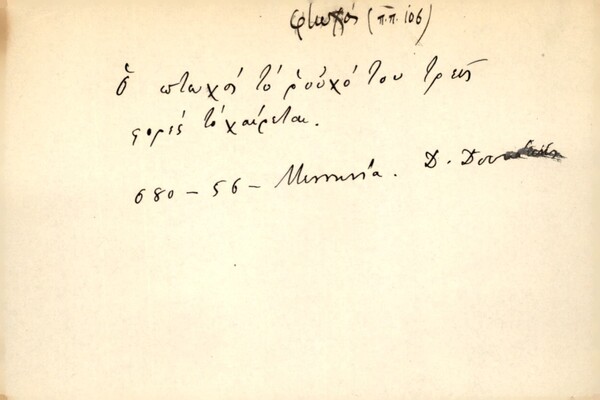 φτωχός (π.π. 106)
Ὁ φτωχός τό ροῦχό του τρεῖς
φορές τό χαίρεται.
680 – 56 – Μεσσηνία. Δ.